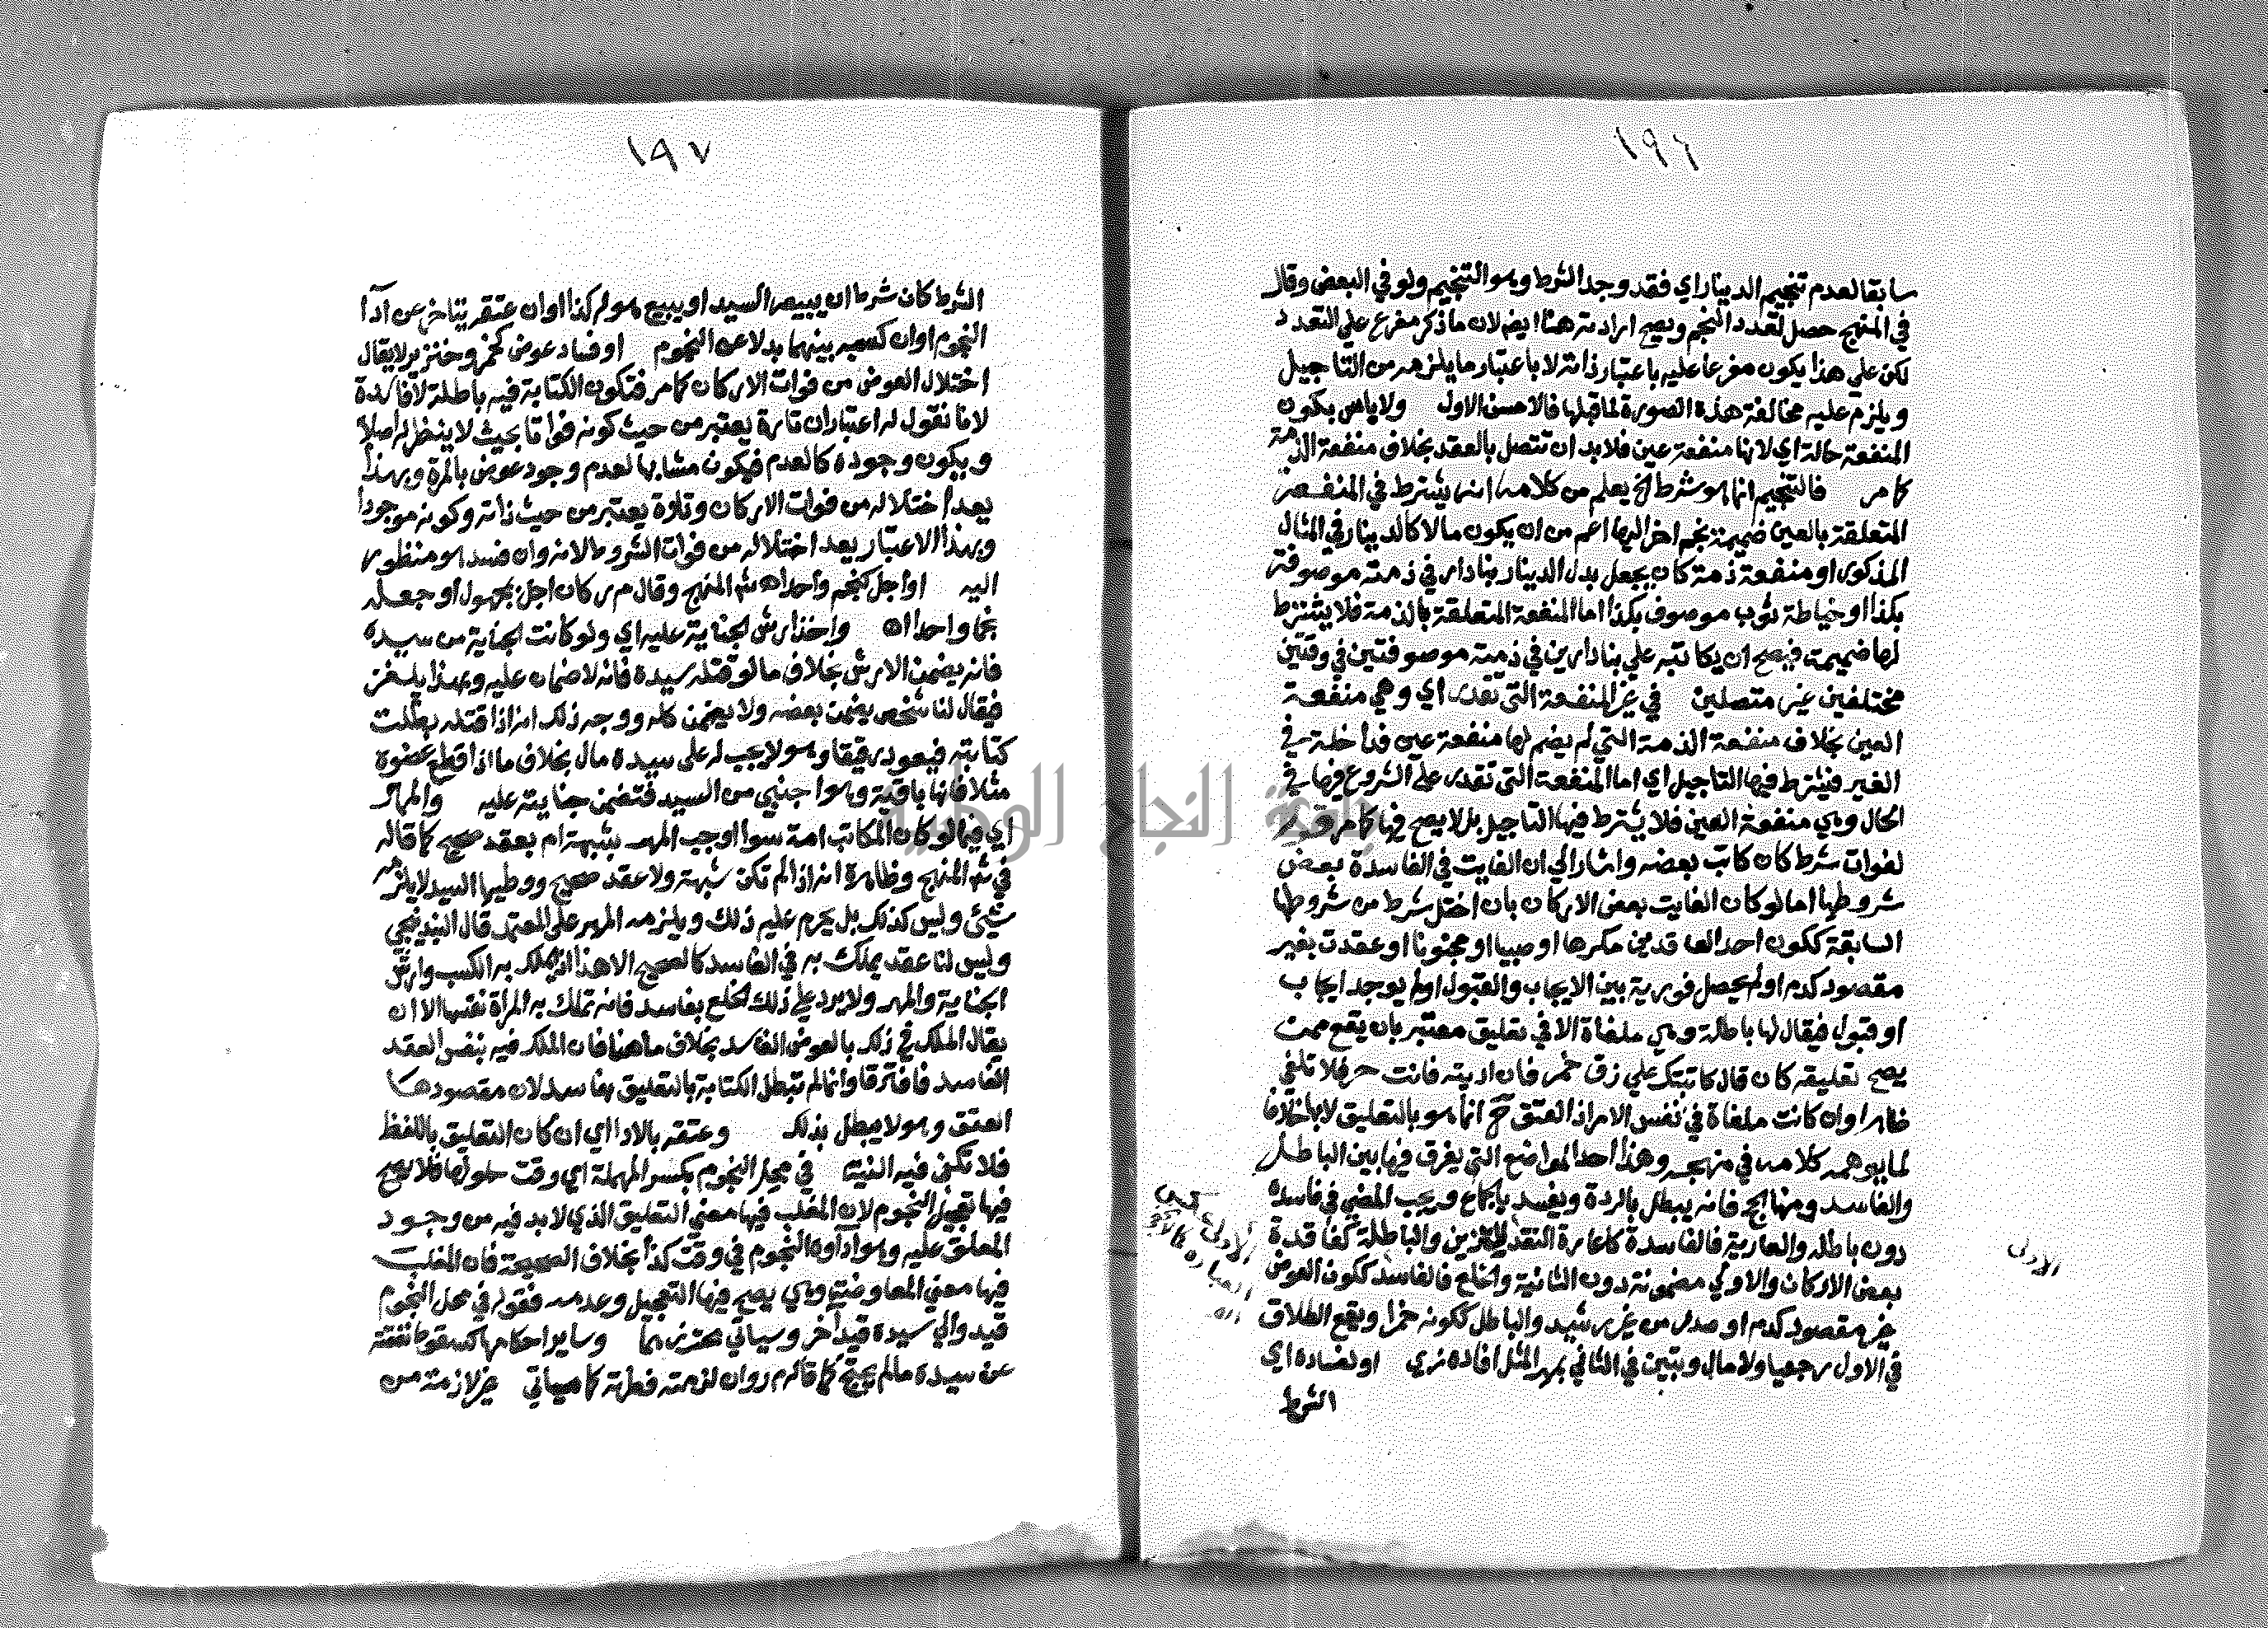 ١٩٦
سابقا لعدم تنجيم الدينار اي فقد وجد الشرط وهو التنجيم ولو في البعض وقال
في المنهج حصل لتعدد النجم ويصح ارادته هنا ايضا لان ما ذكر مفرع علي التعدد
لكن علي هذا يكون مفرعا عليه باعتبار ذاته لا باعتبار ما يلزمه من التاجيل
ويلزم عليه مخالفة هذه الصورة لما قبلها فالاحسن الاول ولا باس بكون
المنفعة حالة اي لانها منفعة عين فلا بد ان تتصل بالعقد بخلاف منفعة الذمة
كما مر فالتنجيم انما هو شرط الخ يعلم من كلامه انه يشترط في المنفعة
المتعلقة بالعين ضميمة نجم اخر اليها اعم من ان يكون مالا كالدينار في المثال
المذكور او منفعة ذمة كان يجعل بدل الدينار بنا دار في ذمته موصوفة
بكذا او خياطة ثوب موصوف بكذا اما المنفعة المتعلقة بالذمة فلا يشترط
لها ضميمة فيصح ان يكاتبه علي بنا دارين في ذمته موصوفتين في وقتين
مختلفين غير متصلين في غير المنفعة التي تقدر اي وهي منفعة
العين بخلاف منفعة الذمة التي لم يضم لها منفعة عين فداخلة في
الغير فيشترط فيها التاجيل اي اما المنفعة التي تقدر علي الشروع فيها في
الحال وهي منفعة العين فلا يشترط فيها التاجيل بل لا يصح فيها كما مر قوله
لفوات شرط كان كاتب بعضه واشار الي ان الفايت في الفاسدة بعض
شروطها اما لو كان الفايت بعض الاركان بان اختل شرط من شروطها
السابقة ككون احد العاقدين مكرها او صبيا او مجنونا او عقدت بغير
مقصود كدم او لم يحصل فورية بين الايجاب والقبول او لم يوجد ايجاب
او قبول فيقال لها باطلة وهي ملغاة الا في تعليق معتبر بان يقع ممن
يصح تعليقه كان قال كاتبتك علي زق خمر فان اديته فانت حر فلا تلغي
ظاهرا وان كانت ملغاة في نفس الامر اذ العتق ح انما هو بالتعليق لا بها خلافا
لما يوهمه كلامه في منهجه وهذا احد المواضع التي يفرق فيها بين الباطل
والفاسد ومنها الحج فانه يبطل بالردة ويفسد بالجماع ويجب المضي في فاسده
دون باطله والعارية فالفاسدة كاعارة النقد للتزيين والباطلة كفاقدة
بعض الاركان والاولي مضمونة دون الثانية والخلع فالفاسد ككون العوض
غير مقصود كدم او صدر من غير رشيد والباطل ككونه خمرا ويقع الطلاق
في الاول رجعيا ولا مال وتبين في الثاني بمهر المثل افاده زي او لفساده اي
الشرط
الاولي
١٩٧
الشرط كان شرط ان يبيعه السيد او يبيع هو له كذا او ان عتقه يتاخر عن ادآ
النجوم او ان كسبه بينهما بدلا عن النجوم او فساد عوض كخمر وخنزير لا يقال
اختلال العوض من فوات الاركان كما مر فتكون الكتابة فيه باطلة لا فاسدة
لانا نقول له اعتباران تارة يعتبر من حيث كونه فواتا بحيث لا ينظر له اصلا
ويكون وجوده كالعدم فيكون مشابها لعدم وجود عوض بالمرة وبهذا
يعد اختلاله من فوات الاركان وتارة يعتبر من حيث ذاته وكونه موجودا
وبهذا الاعتبار يعد اختلاله من فوات الشروط لانه وان فسد هو منظور
اليه او اجل كنجم واحد اه ش المنهج وقال م ر كان اجل بمجهول او جعله
نجما واحدا اه واخذ ارش الجناية عليه اي ولو كانت الجناية من سيده
فانه يضمن الارش بخلاف ما لو قتله سيده فانه لا ضمان عليه وبهذا يلغز
فيقال لنا شخص يضمن بعضه ولا يضمن كله ووجه ذلك انه اذا قتله بطلت
كتابته فيعود رقيقا وهو لا يجب له علي سيده مال بخلاف ما اذا قطع عضوه
مثلا فانها باقية وهو اجنبي من السيد فتضمن جنايته عليه والمهر
اي فيما لو كان المكاتب امة سوا اوجب المهر بشبهة ام بعقد صحيح كما قاله
في ش المنهج وظاهره انه اذا لم تكن شبهة ولا عقد صحيح ووطيها السيد لا يلزمه
شيئ وليس كذلك بل يحرم عليه ذلك ويلزمه المهر علي المعتمد قال البندنيجي
وليس لنا عقد يملك به في الفاسد كالصحيح الا هذا اي يملك به الكسب وارش
الجناية والمهر ولا يرد علي ذلك الخلع بفاسد فانه تملك به المراة نفسها الا ان
يقال الملك في ذلك بالعوض الفاسد بخلاف ما هنا فان الملك فيه بنفس العقد
الفاسد فافترقا وانما لم تبطل الكتابة بالتعليق بفاسد لان مقصودها
العتق وهو لا يبطل بذلك وعتقه بالادا اي ان كان التعليق باللفظ
فلا تكفي فيه النية في محل النجوم بكسر المهملة اي وقت حلولها فلا يصح
فيها تعجيل النجوم لان المغلب فيها معني التعليق الذي لا بد فيه من وجود
المعلق عليه وهو اداوه النجوم في وقت كذا بخلاف الصحيحة فان المغلب
فيها معني المعاوضة وهي يصح فيها التعجيل وعدمه فقوله في محل النجوم
قيد والي سيده قيد آخر وسياتي محترزهما وساير احكامها كسقوط نفقته
عن سيده ما لم يحتج كما قاله م ر وان لزمته فطرته كما سياتي غير لازمة من